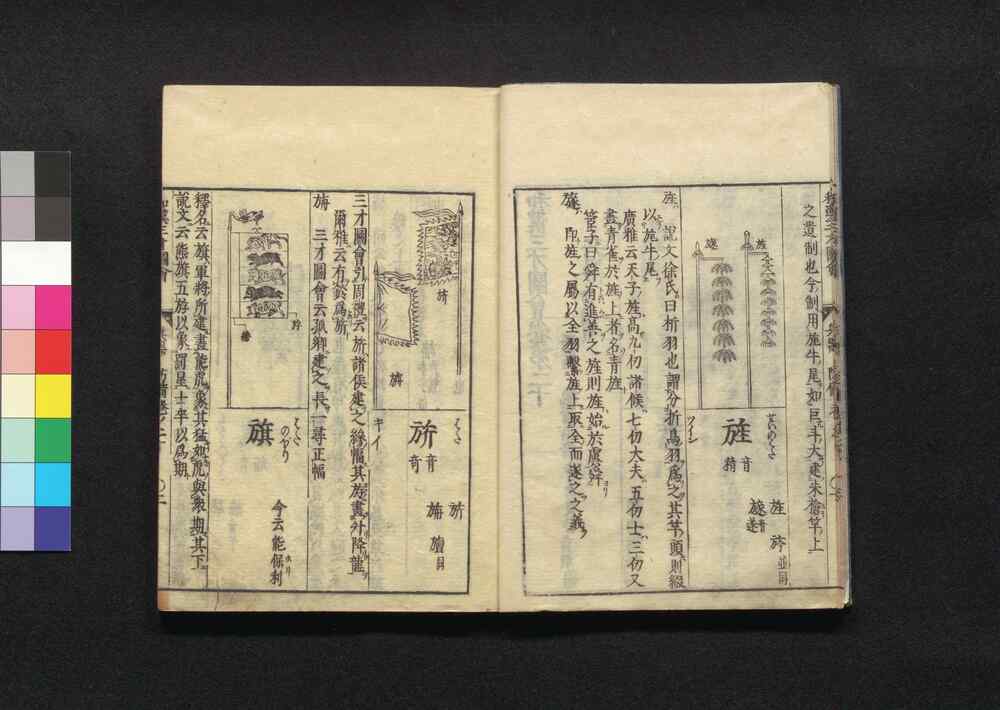 之遺制也今制用旄牛尾如巨斗大建朱槍竿上
旌
旞
せいのはた
旌
音
精
ツイン
旌
並同
旞
音
遂
旌 說文徐氏曰析羽也謂分折鳥羽爲之其竿頭則綴
以旄牛尾
廣雅云天子旌高九仞諸侯七仞大夫五仞士三仞又
畫靑雀於旌上者名靑旌
管子曰舜有進善之旌則旌始於虞舜
旞 卽旌之屬以全羽繫旌上取全而遂之之義
旂
旃
はた
旂
音
奇
キイ
旂
旜
同
三才圖會引周禮云旂諸侯建之絳幅其斿畫外降龍
爾雅云有鈴爲旂
旃 三才圖會云孤卿建之長一尋正幅
はた
のぼり
旗
今云能保利
釋名云旗軍將所建畫熊虎象其猛如虎與衆期其下
說文云熊旗五游以象罰星士卒以爲期